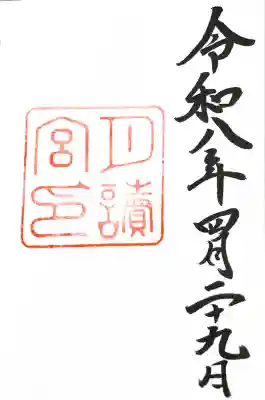 令和八年四月二十九日
月讀
宮印